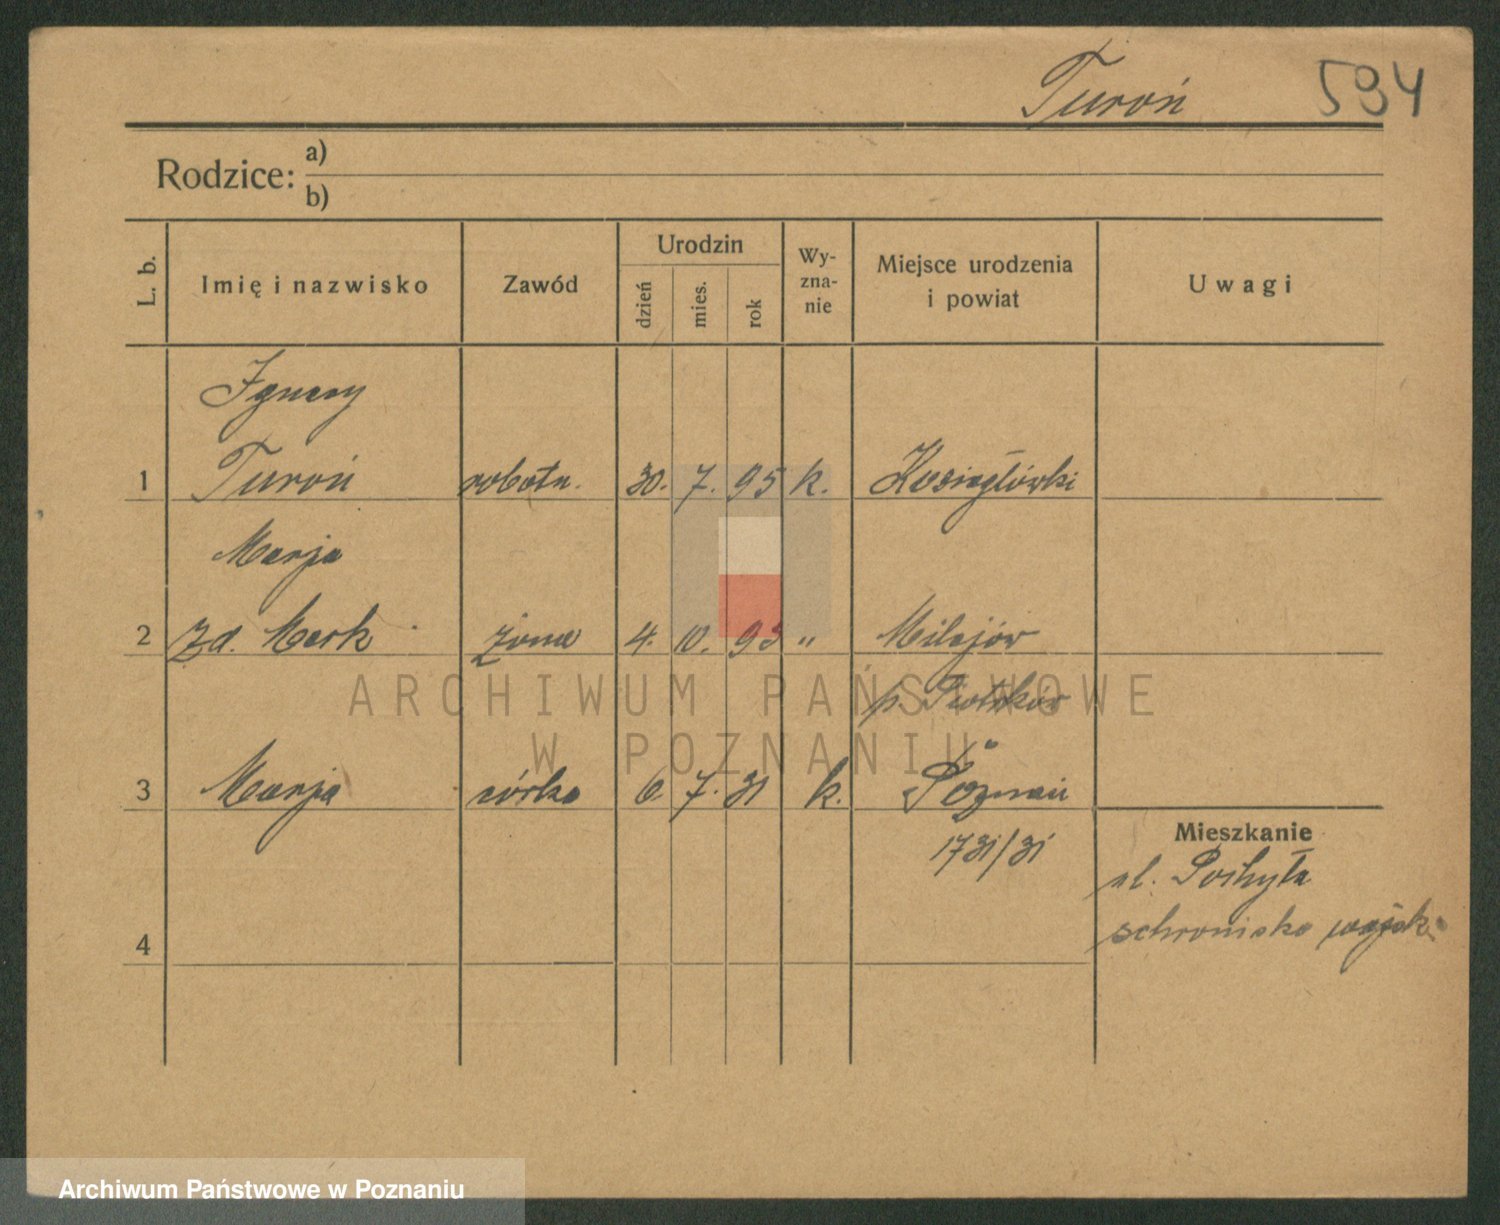 Turoń 594
Rodzice: a)
b)
L. b. Imię i nazwisko Zawód Urodzin dzień mies. rok Wy-zna-nie Miejsce urodzenia i powiat Uwagi
Ignacy
1 Turoń robotn. 30. 7. 95 k. Kosiegłówki
Marja
2 zd. Mark żona 4. 10. 93 " Milejów
p. Piotrków
3 Marja córka 6. 7. 31 k. Poznań
1731/31
Mieszkanie
ul. Pochyła
schronisko wojsk.
4
ARCHIWUM PAŃSTWOWE
W POZNANIU
Archiwum Państwowe w Poznaniu